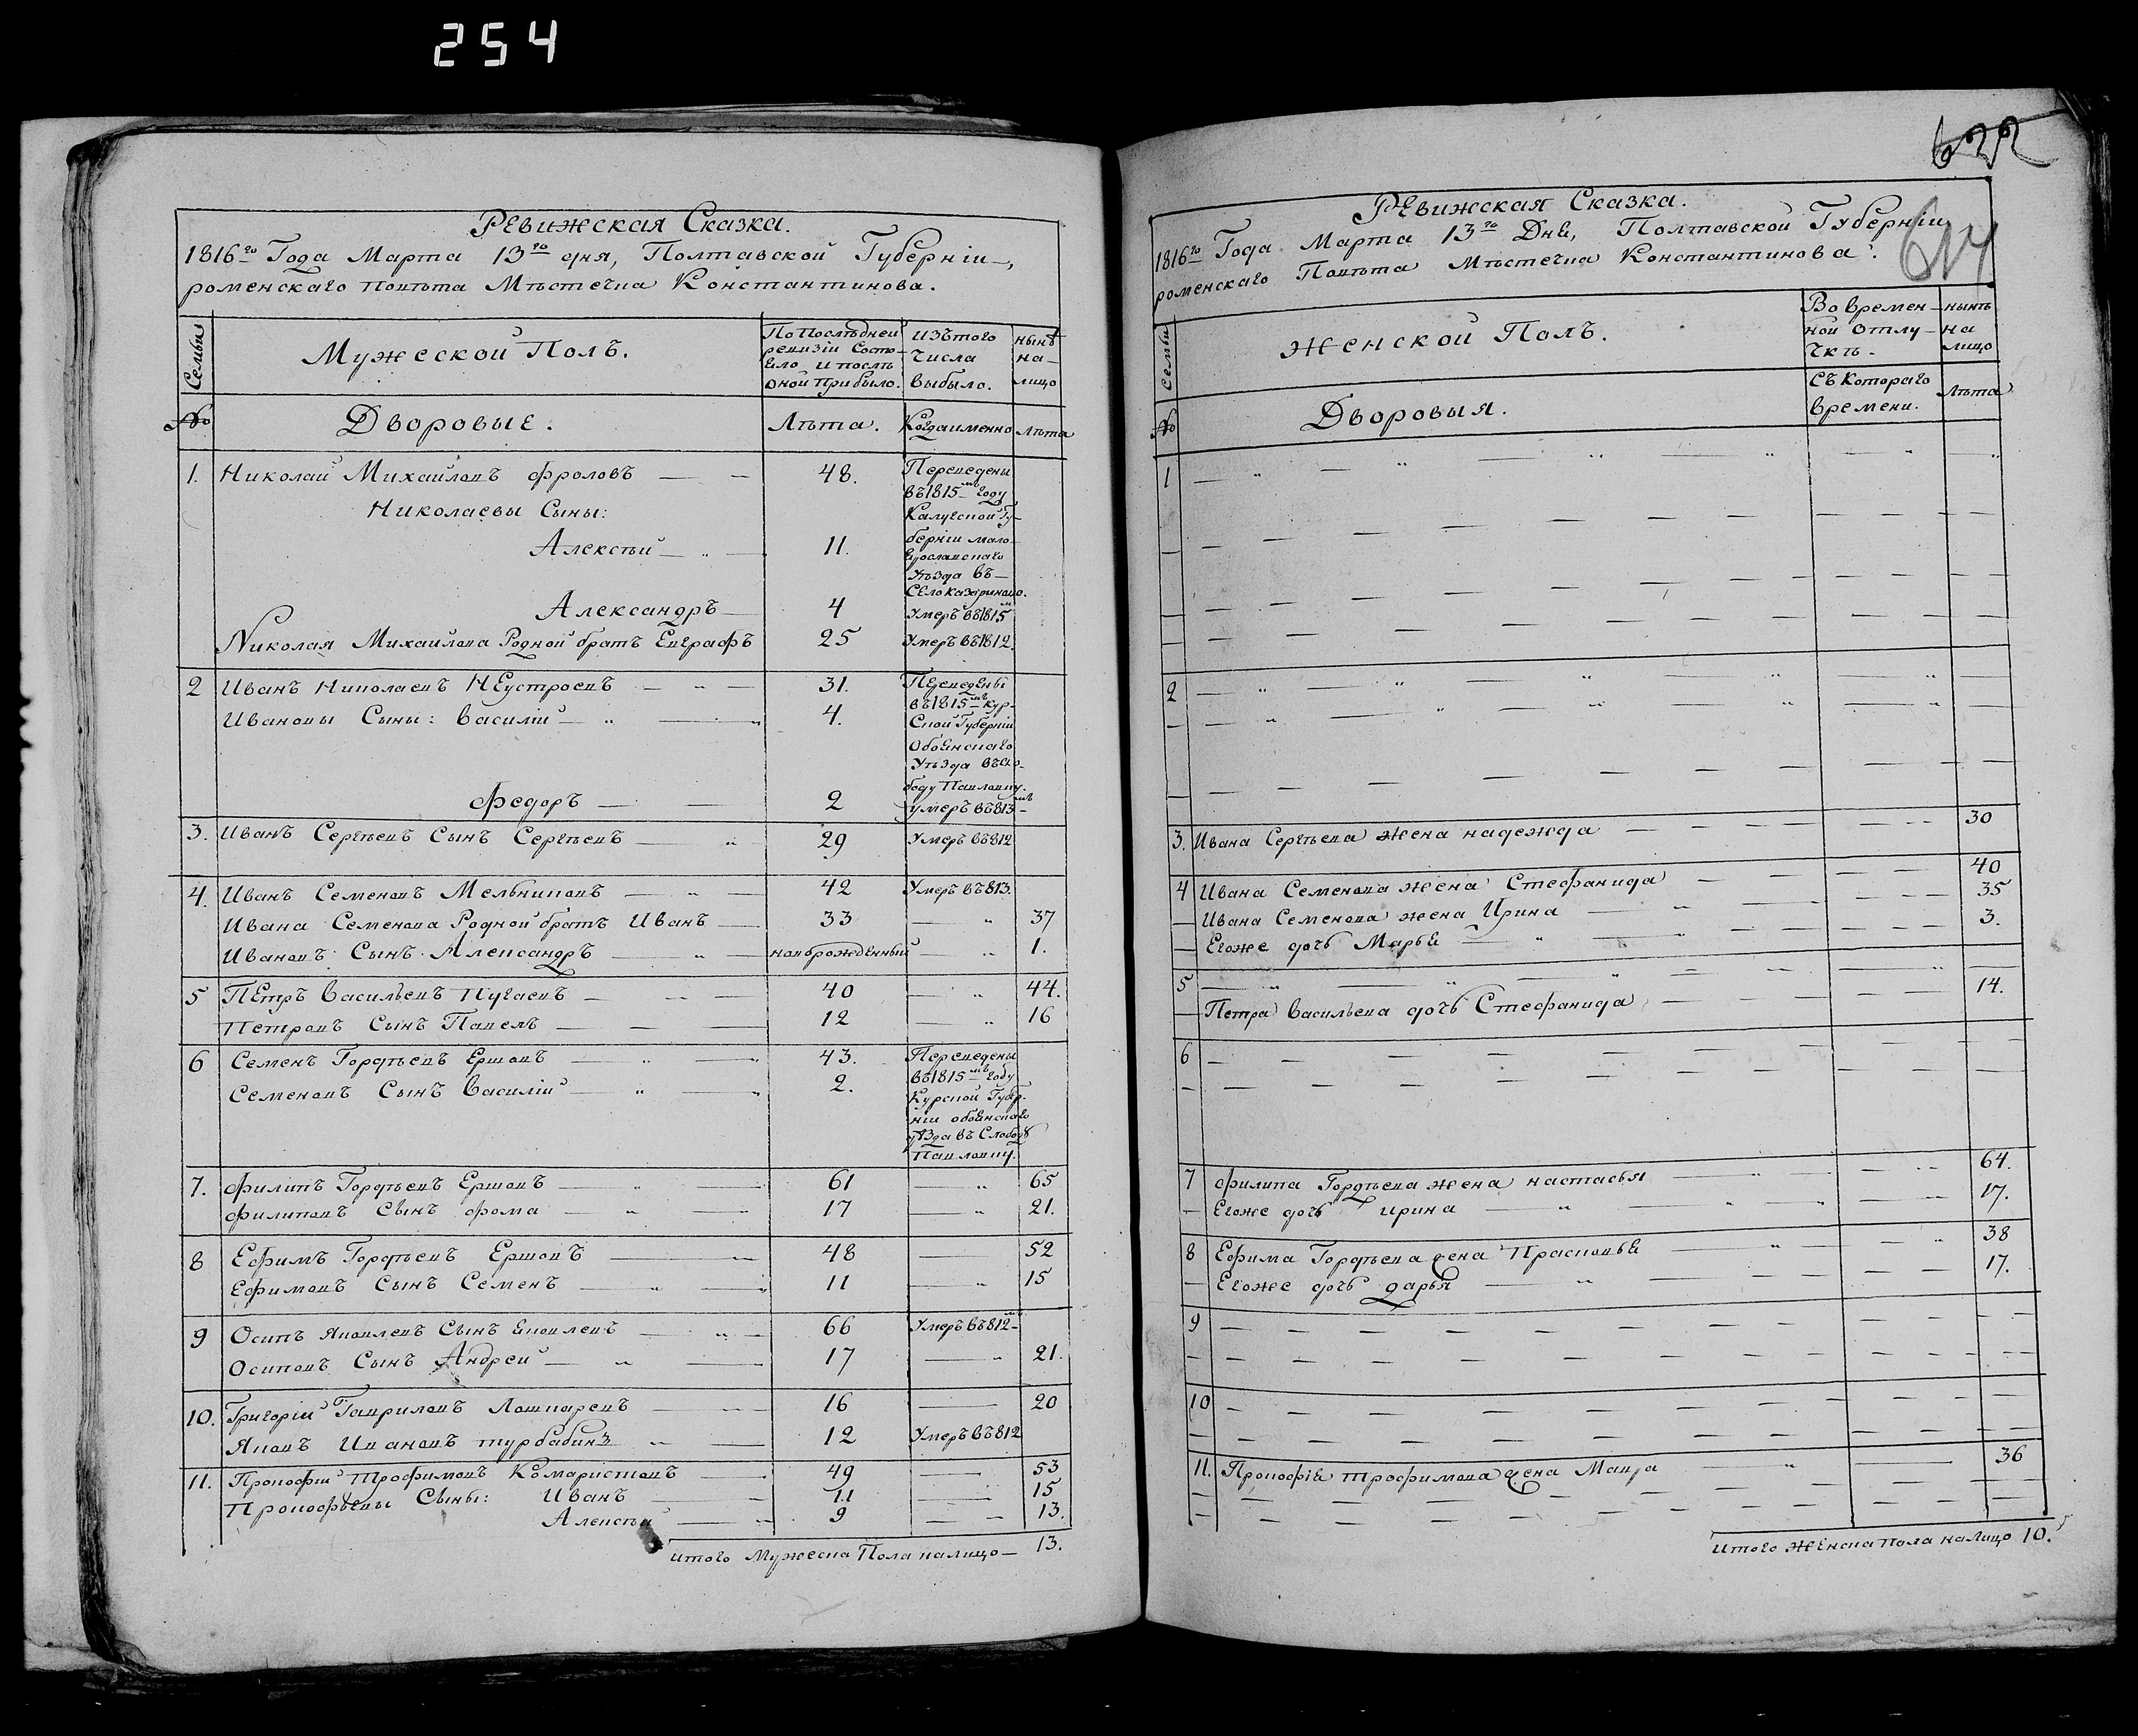 254
Ревижская Сказка.
1816го Года Марта 13го дня, Полтавской Губерніи,
роменскаго повѣта Мѣстечка Константинова.
Семьи
Мужеской Полъ.
По Послѣдней ревизіи Состояло и послѣ оной прибыло.
Изъ того числа выбыло.
нынѣ на лицо
№
Дворовые.
Лѣта.
Когда именно
Лѣта
1. Николай Михайловъ Фроловъ 48. Переведены
въ 1815мъ году
Николаевы Сыны: Калужской Гу-
Алексѣй 11. берніи мало-
ярославскаго
Уѣзда въ
Село
Александръ 4 Умеръ въ 1815м
Николая Михайлова Родной братъ Евграфъ 25 Умеръ въ 1812.
2 Иванъ Николаевъ Неустроевъ 31. Переведены
въ 1815мъ Кур-
Ивановы Сыны: Василій 4. ской Губерніи
Обоянскаго
Уѣзда въ Сло-
боду Павловку.
Федоръ 2 умеръ въ 813мъ
3. Иванъ Сергѣевъ Сынъ Сергѣевъ 29 Умеръ въ 812
4. Иванъ Семеновъ Мельниковъ 42 Умеръ въ 813.
Ивана Семенова Родной братъ Иванъ 33 37
Ивановъ Сынъ Александръ новорожденный 1.
5 Петръ Васильевъ Пугаевъ 40 44.
Петровъ Сынъ Павелъ 12 16
6 Семенъ Гордѣевъ Ершовъ 43. Переведены
въ 1815мъ году
Семеновъ Сынъ Василій 2. Курской Губер-
ніи обоянскаго
уѣзда въ Слободу
Павловку.
7. Филипъ Гордѣевъ Ершовъ 61 65
Филиповъ Сынъ Фома 17 21.
8 Ефимъ Гордѣевъ Ершовъ 48 52
Ефимовъ Сынъ Семенъ 11 15
9 Осипъ Яковлевъ Сынъ Яковлевъ 66 Умеръ въ 812мъ
Осиповъ Сынъ Андрей 17 21.
10. Григорій Гавриловъ Лошкаревъ 16 20
Яковъ Ивановъ турбабинъ 12 Умеръ въ 812
11. Прокофій Трофимовъ Комаристовъ 49 53
Прокофьевы Сыны: Иванъ 11 15
Алексѣй 9 13.
Итого Мужеска Пола налицо 13.
622
614
Ревижская Сказка.
1816го Года Марта 13го Дня, Полтавской Губерніи
роменскаго Повѣта Мѣстечка Константинова.
Семьи
Женской Полъ.
Во временной отлучкѣ.
нынѣ на лицо
№
Дворовыя.
Съ котораго времени.
Лѣта
1
2
3. Ивана Сергѣева жена надежда 30
4 Ивана Семенова жена Стефанида 40
Ивана Семенова жена Ирина 35
Егоже дочь Марья 3.
5
Петра Васильева дочь Стефанида 14.
6
7 Филипа Гордѣева жена настасья 64.
Егоже дочь ирина 17.
8 Ефима Гордѣева жена Прасковья 38
Егоже дочь дарья 17.
9
10
11. Прокофія трофимова жена Мавра 36
Итого Женска пола налицо 10.